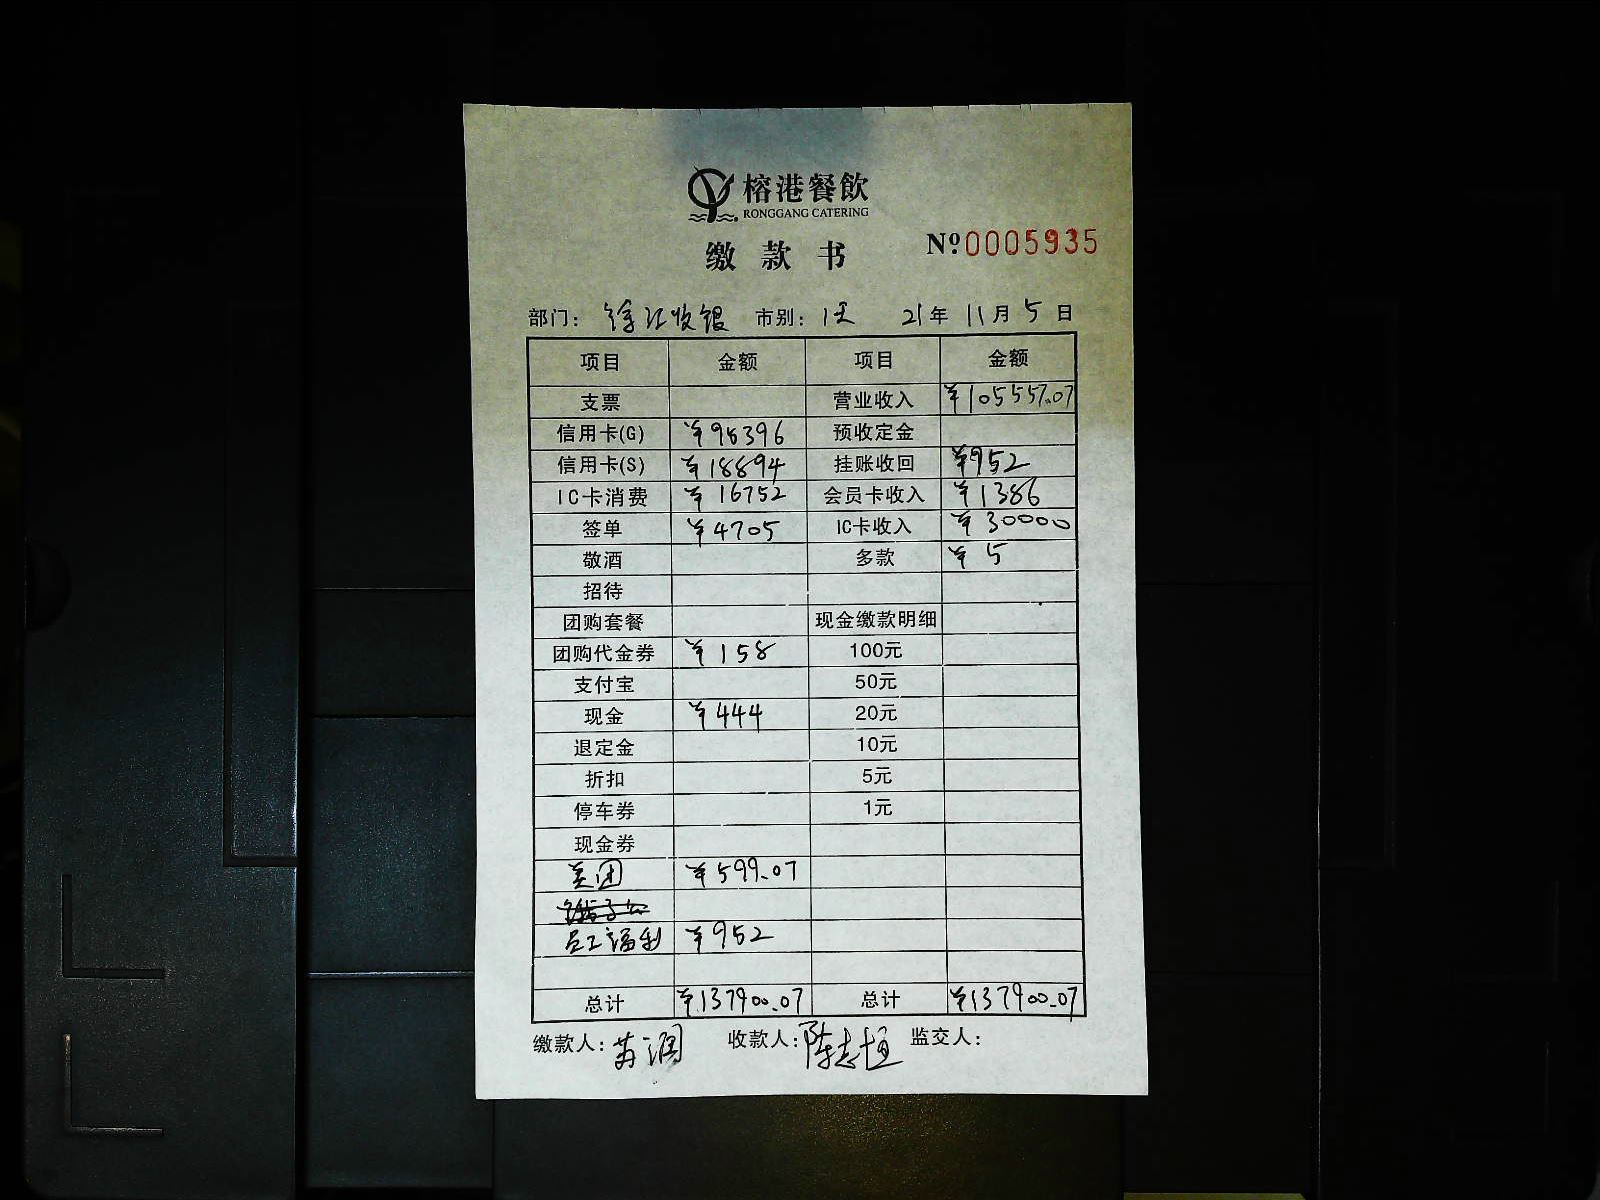 榕港餐飲
RONGGANG CATERING
缴款书
№0005935
部门：徐汇收银 市别：1天 21年 11月 5日
项目 金额 项目 金额
支票 营业收入 ¥105557.07
信用卡(G) ¥95396 预收定金
信用卡(S) ¥18894 挂账收回 ¥952
IC卡消费 ¥16752 会员卡收入 ¥1386
签单 ¥4705 IC卡收入 ¥30000
敬酒 多款 ¥5
招待
团购套餐 现金缴款明细
团购代金券 ¥158 100元
支付宝 50元
现金 ¥444 20元
退定金 10元
折扣 5元
停车券 1元
现金券
美团 ¥599.07
员工福利 ¥952
总计 ¥137900.07 总计 ¥137900.07
缴款人： 收款人：陈志恒 监交人：